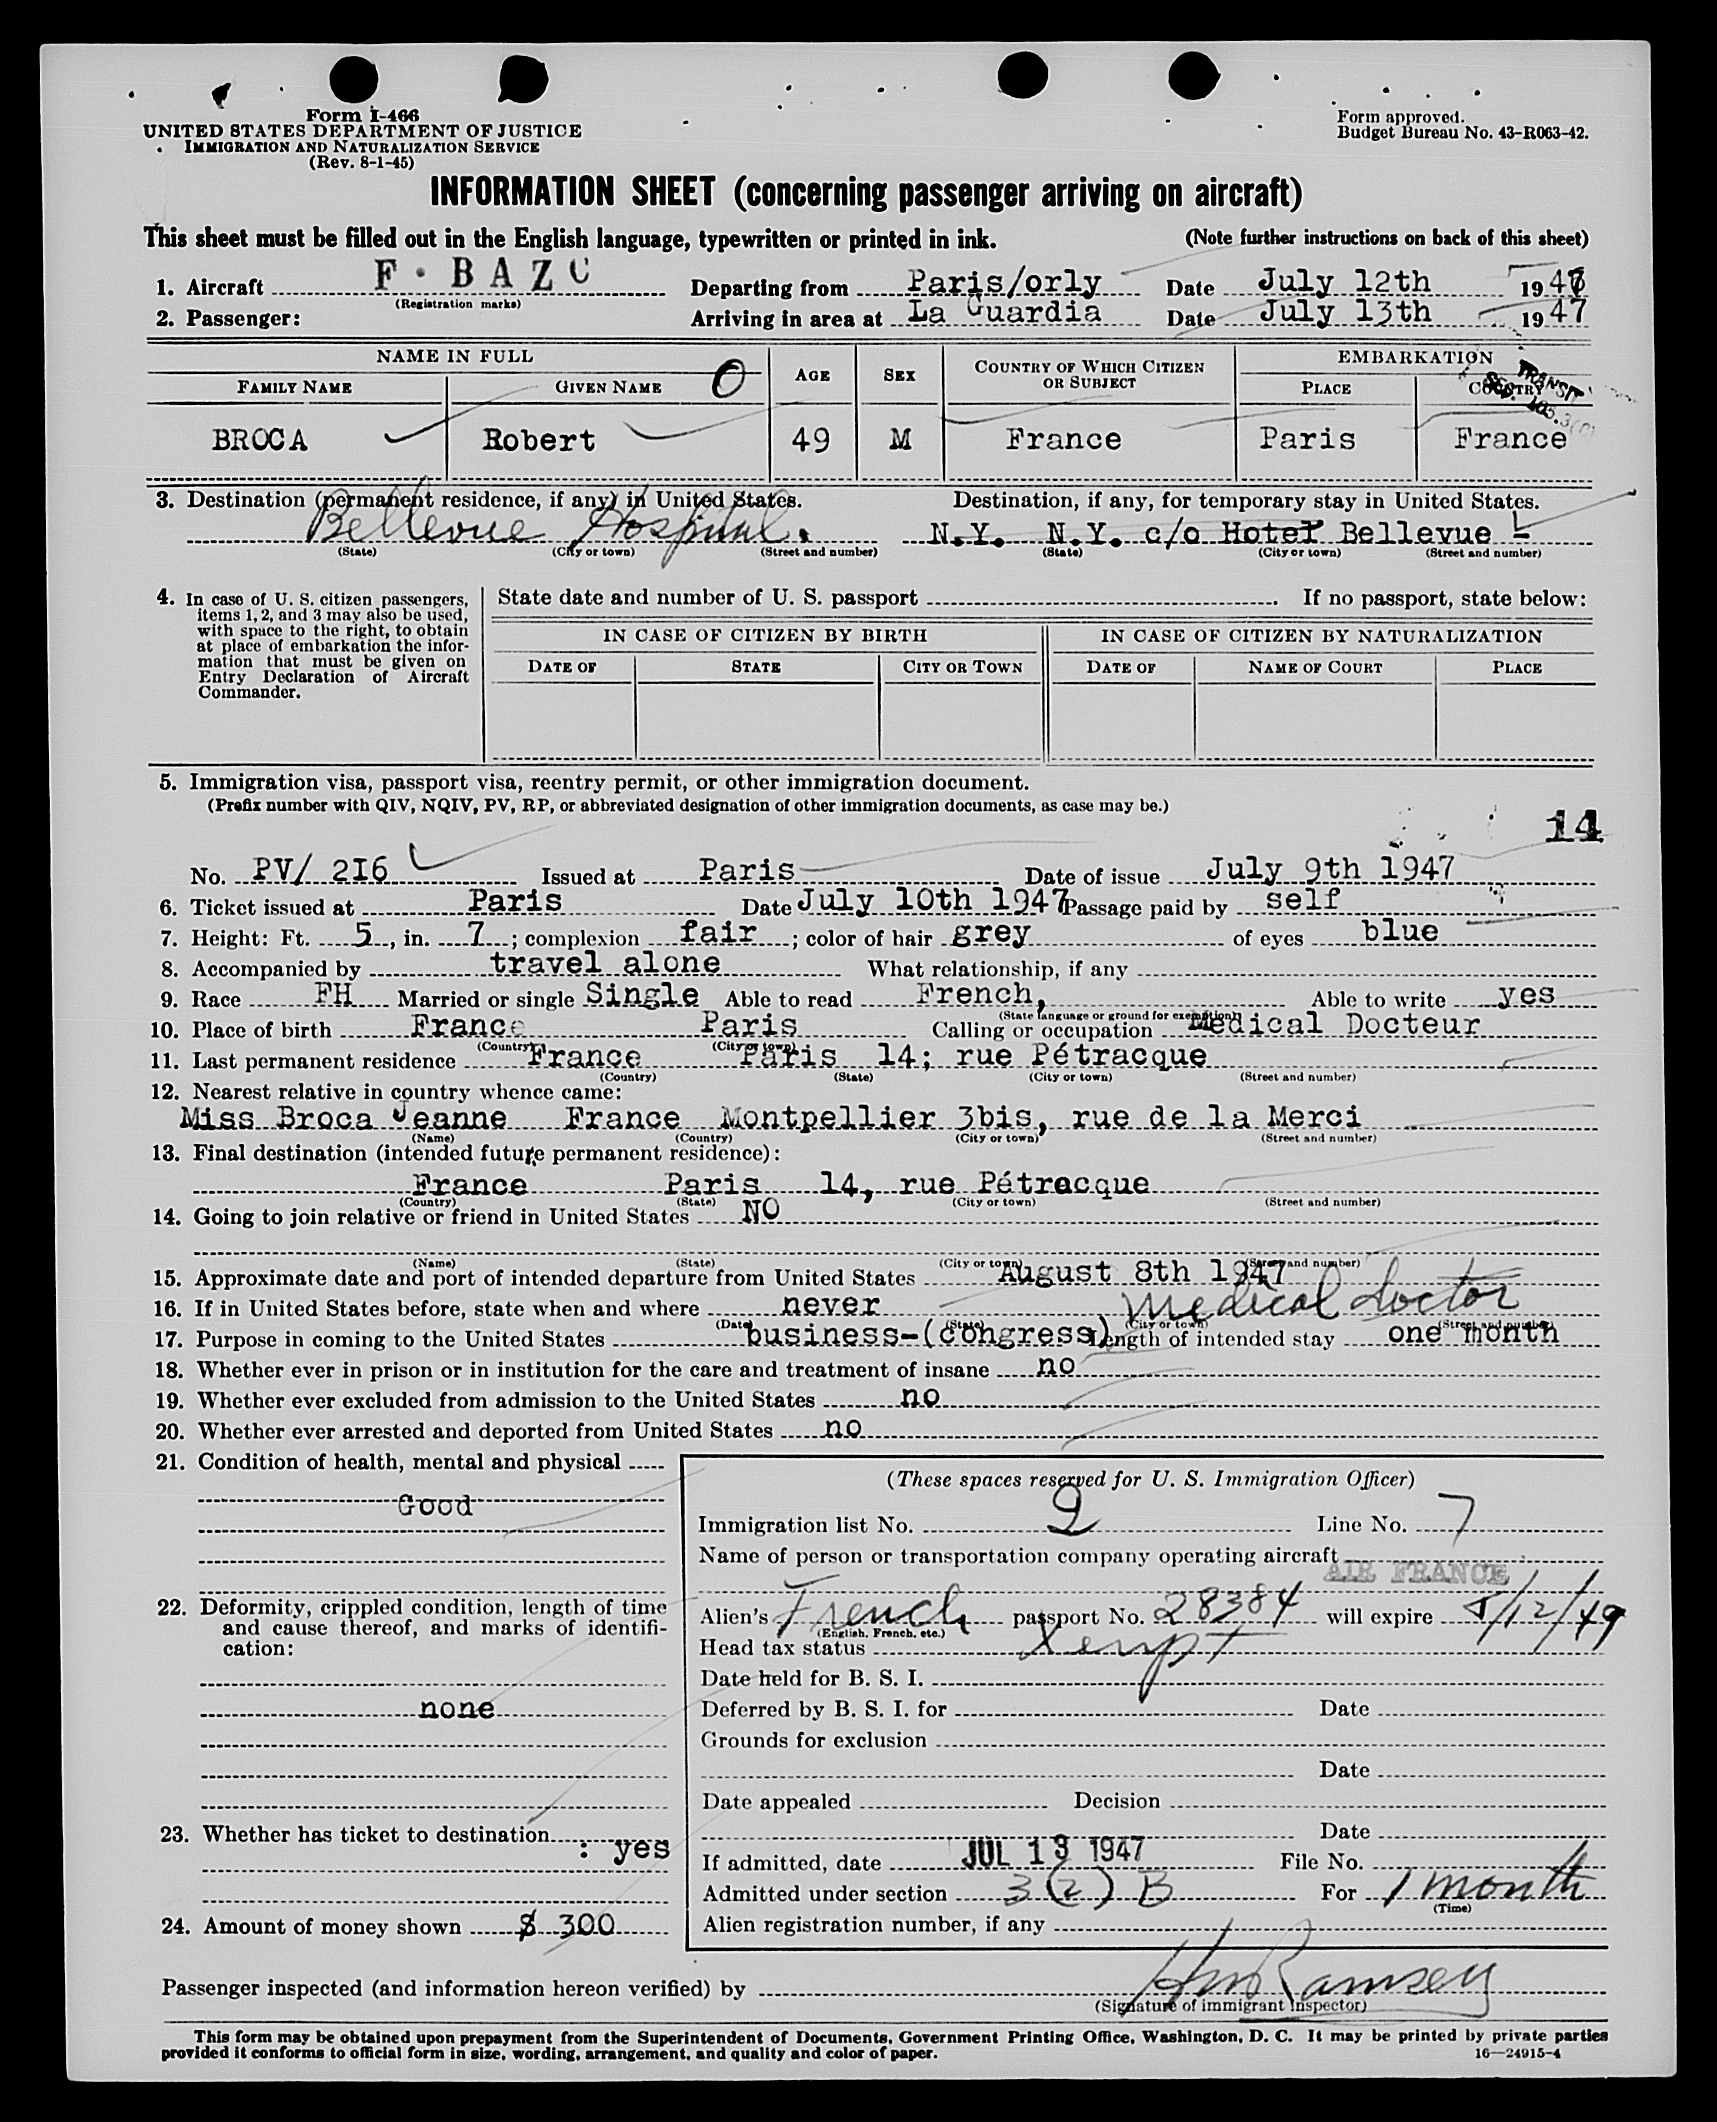 Form I-466
UNITED STATES DEPARTMENT OF JUSTICE
IMMIGRATION AND NATURALIZATION SERVICE
(Rev. 8-1-45)
Form approved.
Budget Bureau No. 43-R063-42.
INFORMATION SHEET (concerning passenger arriving on aircraft)
This sheet must be filled out in the English language, typewritten or printed in ink. (Note further instructions on back of this sheet)
1. Aircraft F·BAZC Departing from Paris/orly Date July 12th 1947
(Registration marks)
2. Passenger: Arriving in area at La Guardia Date July 13th 1947
NAME IN FULL O AGE SEX COUNTRY OF WHICH CITIZEN OR SUBJECT EMBARKATION
FAMILY NAME GIVEN NAME PLACE COUNTRY
TRANSIT
BROCA Robert 49 M France Paris France
3. Destination (permanent residence, if any) in United States. Destination, if any, for temporary stay in United States.
Bellevue Hospital. N.Y. N.Y. c/o Hotel Bellevue -
(State) (City or town) (Street and number) (State) (City or town) (Street and number)
4. In case of U. S. citizen passengers, items 1, 2, and 3 may also be used, with space to the right, to obtain at place of embarkation the information that must be given on Entry Declaration of Aircraft Commander.
State date and number of U. S. passport . If no passport, state below:
IN CASE OF CITIZEN BY BIRTH IN CASE OF CITIZEN BY NATURALIZATION
DATE OF STATE CITY OR TOWN DATE OF NAME OF COURT PLACE
5. Immigration visa, passport visa, reentry permit, or other immigration document.
(Prefix number with QIV, NQIV, PV, RP, or abbreviated designation of other immigration documents, as case may be.)
14
No. PV/ 2I6 Issued at Paris Date of issue July 9th 1947
6. Ticket issued at Paris Date July 10th 1947 Passage paid by self
7. Height: Ft. 5, in. 7; complexion fair; color of hair grey of eyes blue
8. Accompanied by travel alone What relationship, if any
9. Race FH Married or single Single Able to read French, Able to write yes
(State language or ground for exemption)
10. Place of birth France Paris Calling or occupation Medical Docteur
(Country) (City or town)
11. Last permanent residence France Paris 14; rue Pétracque
(Country) (State) (City or town) (Street and number)
12. Nearest relative in country whence came:
Miss Broca Jeanne France Montpellier 3bis, rue de la Merci
(Name) (Country) (City or town) (Street and number)
13. Final destination (intended future permanent residence):
France Paris 14, rue Pétracque
(Country) (State) (City or town) (Street and number)
14. Going to join relative or friend in United States NO
(Name) (State) (City or town) (Street and number)
15. Approximate date and port of intended departure from United States August 8th 1947
16. If in United States before, state when and where never Medical doctor
(Date) (State) (City or town) (Street and number)
17. Purpose in coming to the United States business-(congress) Length of intended stay one month
18. Whether ever in prison or in institution for the care and treatment of insane no
19. Whether ever excluded from admission to the United States no
20. Whether ever arrested and deported from United States no
21. Condition of health, mental and physical
Good
22. Deformity, crippled condition, length of time and cause thereof, and marks of identification:
none
23. Whether has ticket to destination
: yes
24. Amount of money shown $ 300
(These spaces reserved for U. S. Immigration Officer)
Immigration list No. 2 Line No. 7
Name of person or transportation company operating aircraft
AIR FRANCE
Alien's French passport No. 28384 will expire 5/12/49
(English, French, etc.)
Head tax status Xempt
Date held for B. S. I.
Deferred by B. S. I. for Date
Grounds for exclusion
Date
Date appealed Decision
Date
If admitted, date JUL 13 1947 File No.
Admitted under section 3(2)B For 1 month
(Time)
Alien registration number, if any
Passenger inspected (and information hereon verified) by Ramsey
(Signature of immigrant inspector)
This form may be obtained upon prepayment from the Superintendent of Documents, Government Printing Office, Washington, D. C. It may be printed by private parties
provided it conforms to official form in size, wording, arrangement, and quality and color of paper. 16—24915-4